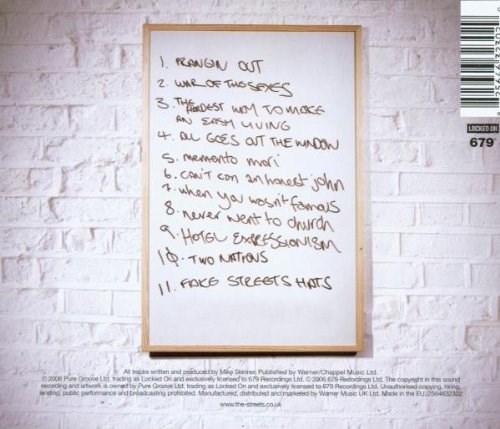 1. PRANGIN OUT
2. WAR OF THE SEXES
3. THE HARDEST WAY TO MAKE
AN EASY LIVING
4. ALL GOES OUT THE WINDOW
5. memento mori
6. can't con an honest john
7. when you wasn't famous
8. never went to church
9. HOTEL EXPRESSIONISM
10. TWO NATIONS
11. FAKE STREETS HATS
LOCKED ON
679
All tracks written and produced by Mike Skinner. Published by Warner/Chappel Music Ltd.
℗ 2006 Pure Groove Ltd. trading as Locked On and exclusively licensed to 679 Recordings Ltd. © 2006 679 Recordings Ltd. The copyright in this sound
recording and artwork is owned by Pure Groove Ltd. trading as Locked On and exclusively licensed to 679 Recordings Ltd. Unauthorised copying, hiring,
lending, public performance and broadcasting prohibited. Manufactured, distributed and marketed by Warner Music UK Ltd. Made in the EU.
www.the-streets.co.uk